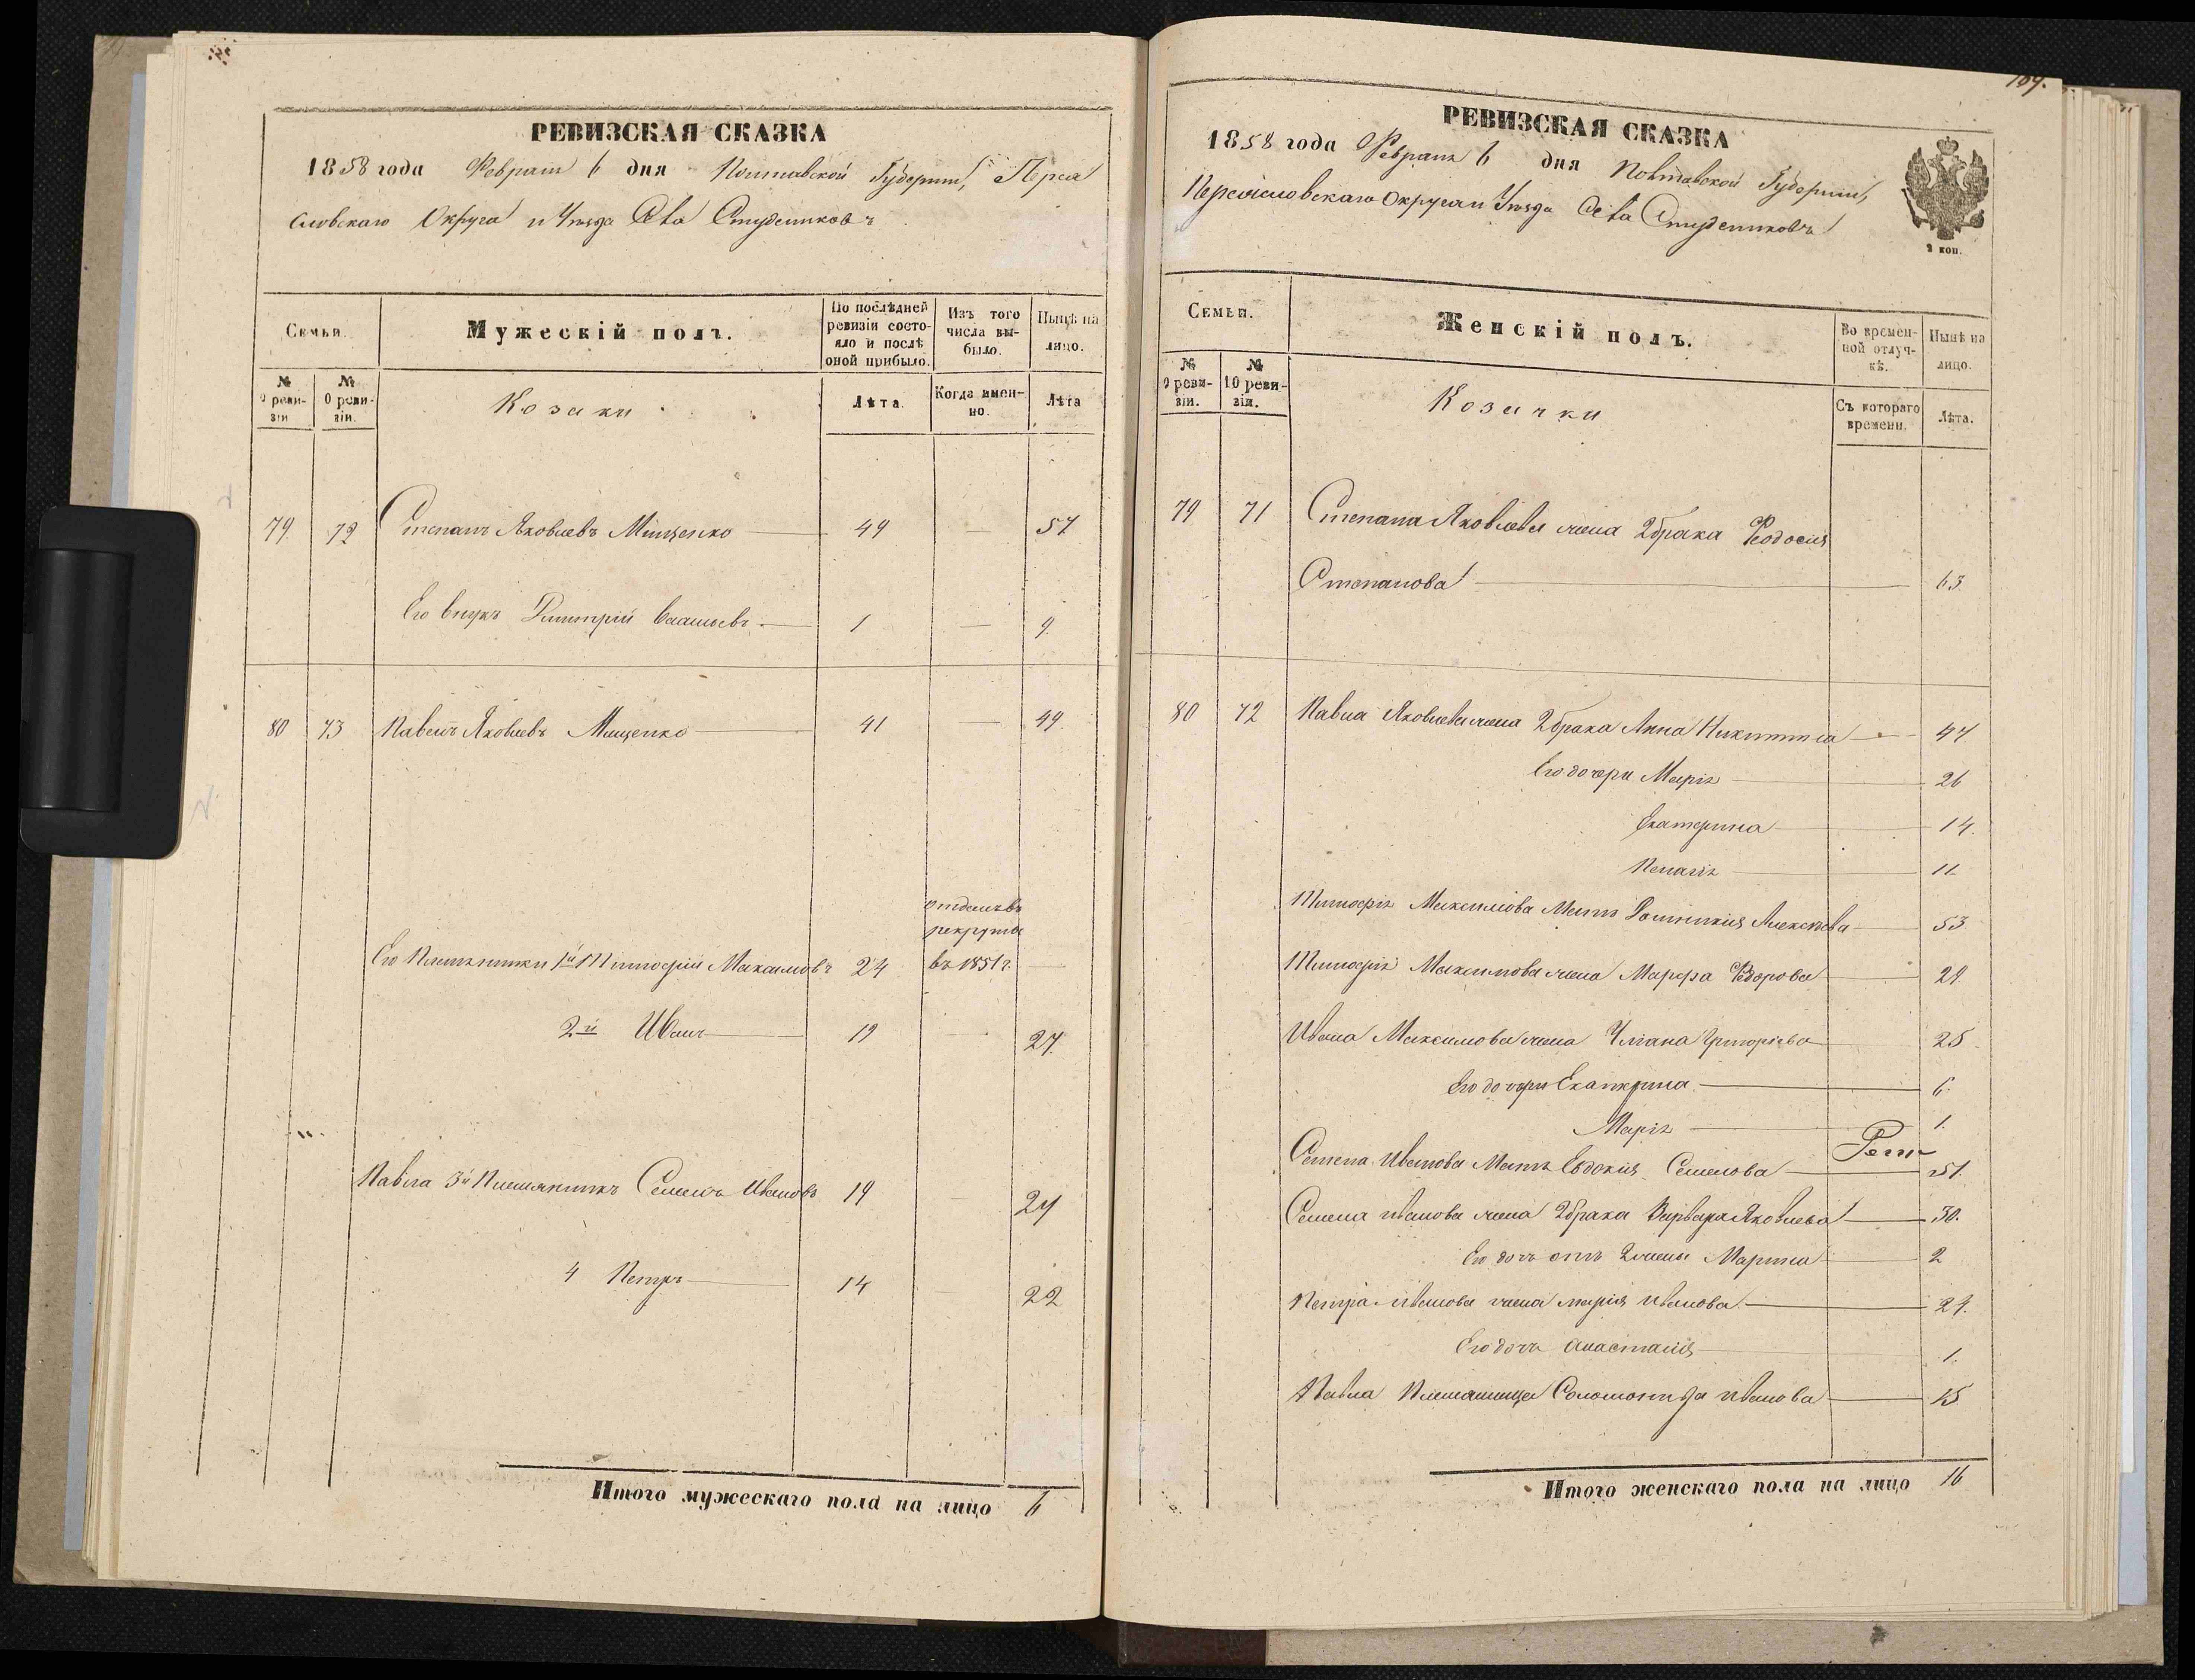 РЕВИЗСКАЯ СКАЗКА
1858 года Февраля 6 дня Полтавской Губернии, Переа
словскаго Округа и Уезда Села Студениковъ
Семьи.
Мужескій полъ.
По послѣдней ревизіи состояло и послѣ оной прибыло.
Изъ того числа выбыло.
Нынѣ на лицо.
№ 9 ревизіи
№ 10 ревизіи.
Козаки
Лѣта.
Когда именно.
Лѣта
79. 72 Степанъ Яковлевъ Мищенко 49 — 57.
Его внукъ Димитрій Васильевъ 1 — 9.
80 73 Павелъ Яковлевъ Мищенко 41 — 49
отданъ въ
рекруты
Его Племянники 1й Тимофій Максимовъ 24 въ 1851 г. —
2й Иванъ 19 — 27.
Павла 3й Племянникъ Семенъ Ивановъ 19 — 27
4 Петръ 14 — 22
Итого мужескаго пола на лицо 6
109.
РЕВИЗСКАЯ СКАЗКА
1858 года Февраля 6 дня Полтавской Губернии,
Переясловскаго Округа и Уезда Села Студениковъ
2 коп.
Семьи.
Женскій полъ.
Во временной отлучкѣ.
Нынѣ на лицо.
№ 9 ревизіи.
№ 10 ревизіи.
Козачки
Съ котораго времени.
Лѣта.
79 71 Степана Яковлева жена 2 брака Феодосія
Степанова 63.
80 72 Павла Яковлева жена 2 брака Анна Никитина 47
Его дочери Марія 26
Екатерина 14.
Пелагія 11
Тимофія Максимова Мать Алексѣева 53.
Тимофія Максимова жена Марфа Федорова 29.
Ивана Максимова жена Уліана Григоріева 25.
Его дочери Екатерина 6.
Марія 1.
Семена Иванова Мать Евдокія Семенова 51.
Семена Иванова жена 2 брака Варвара Яковлева 30.
Его дочь отъ 2 жены Марина 2
Петра Иванова жена Марія Иванова 24.
Его дочь Анастасія 1.
Павла Племянница Соломонида Иванова 15
Итого женскаго пола на лицо 16